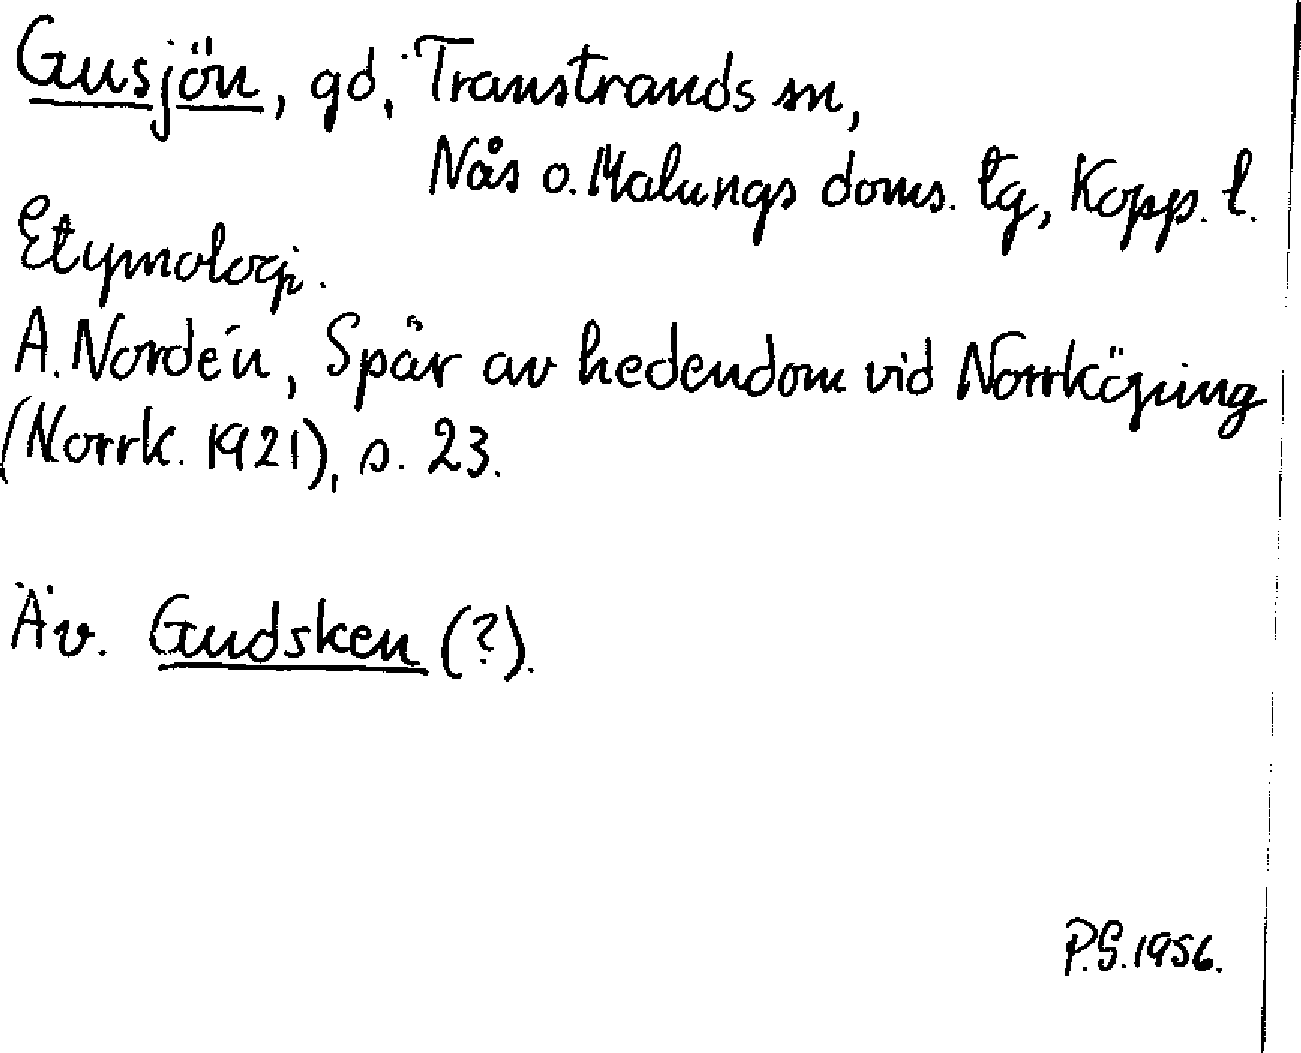 Gusjön, gd, Transtrands sn,
Nås o. Malungs doms. tg, Kopp. l.
Etymologi.
A. Nordén, Spår av hedendom vid Norrköping
(Norrk. 1921), s. 23.
Äv. Gudsken (?).
P.G. 1956.